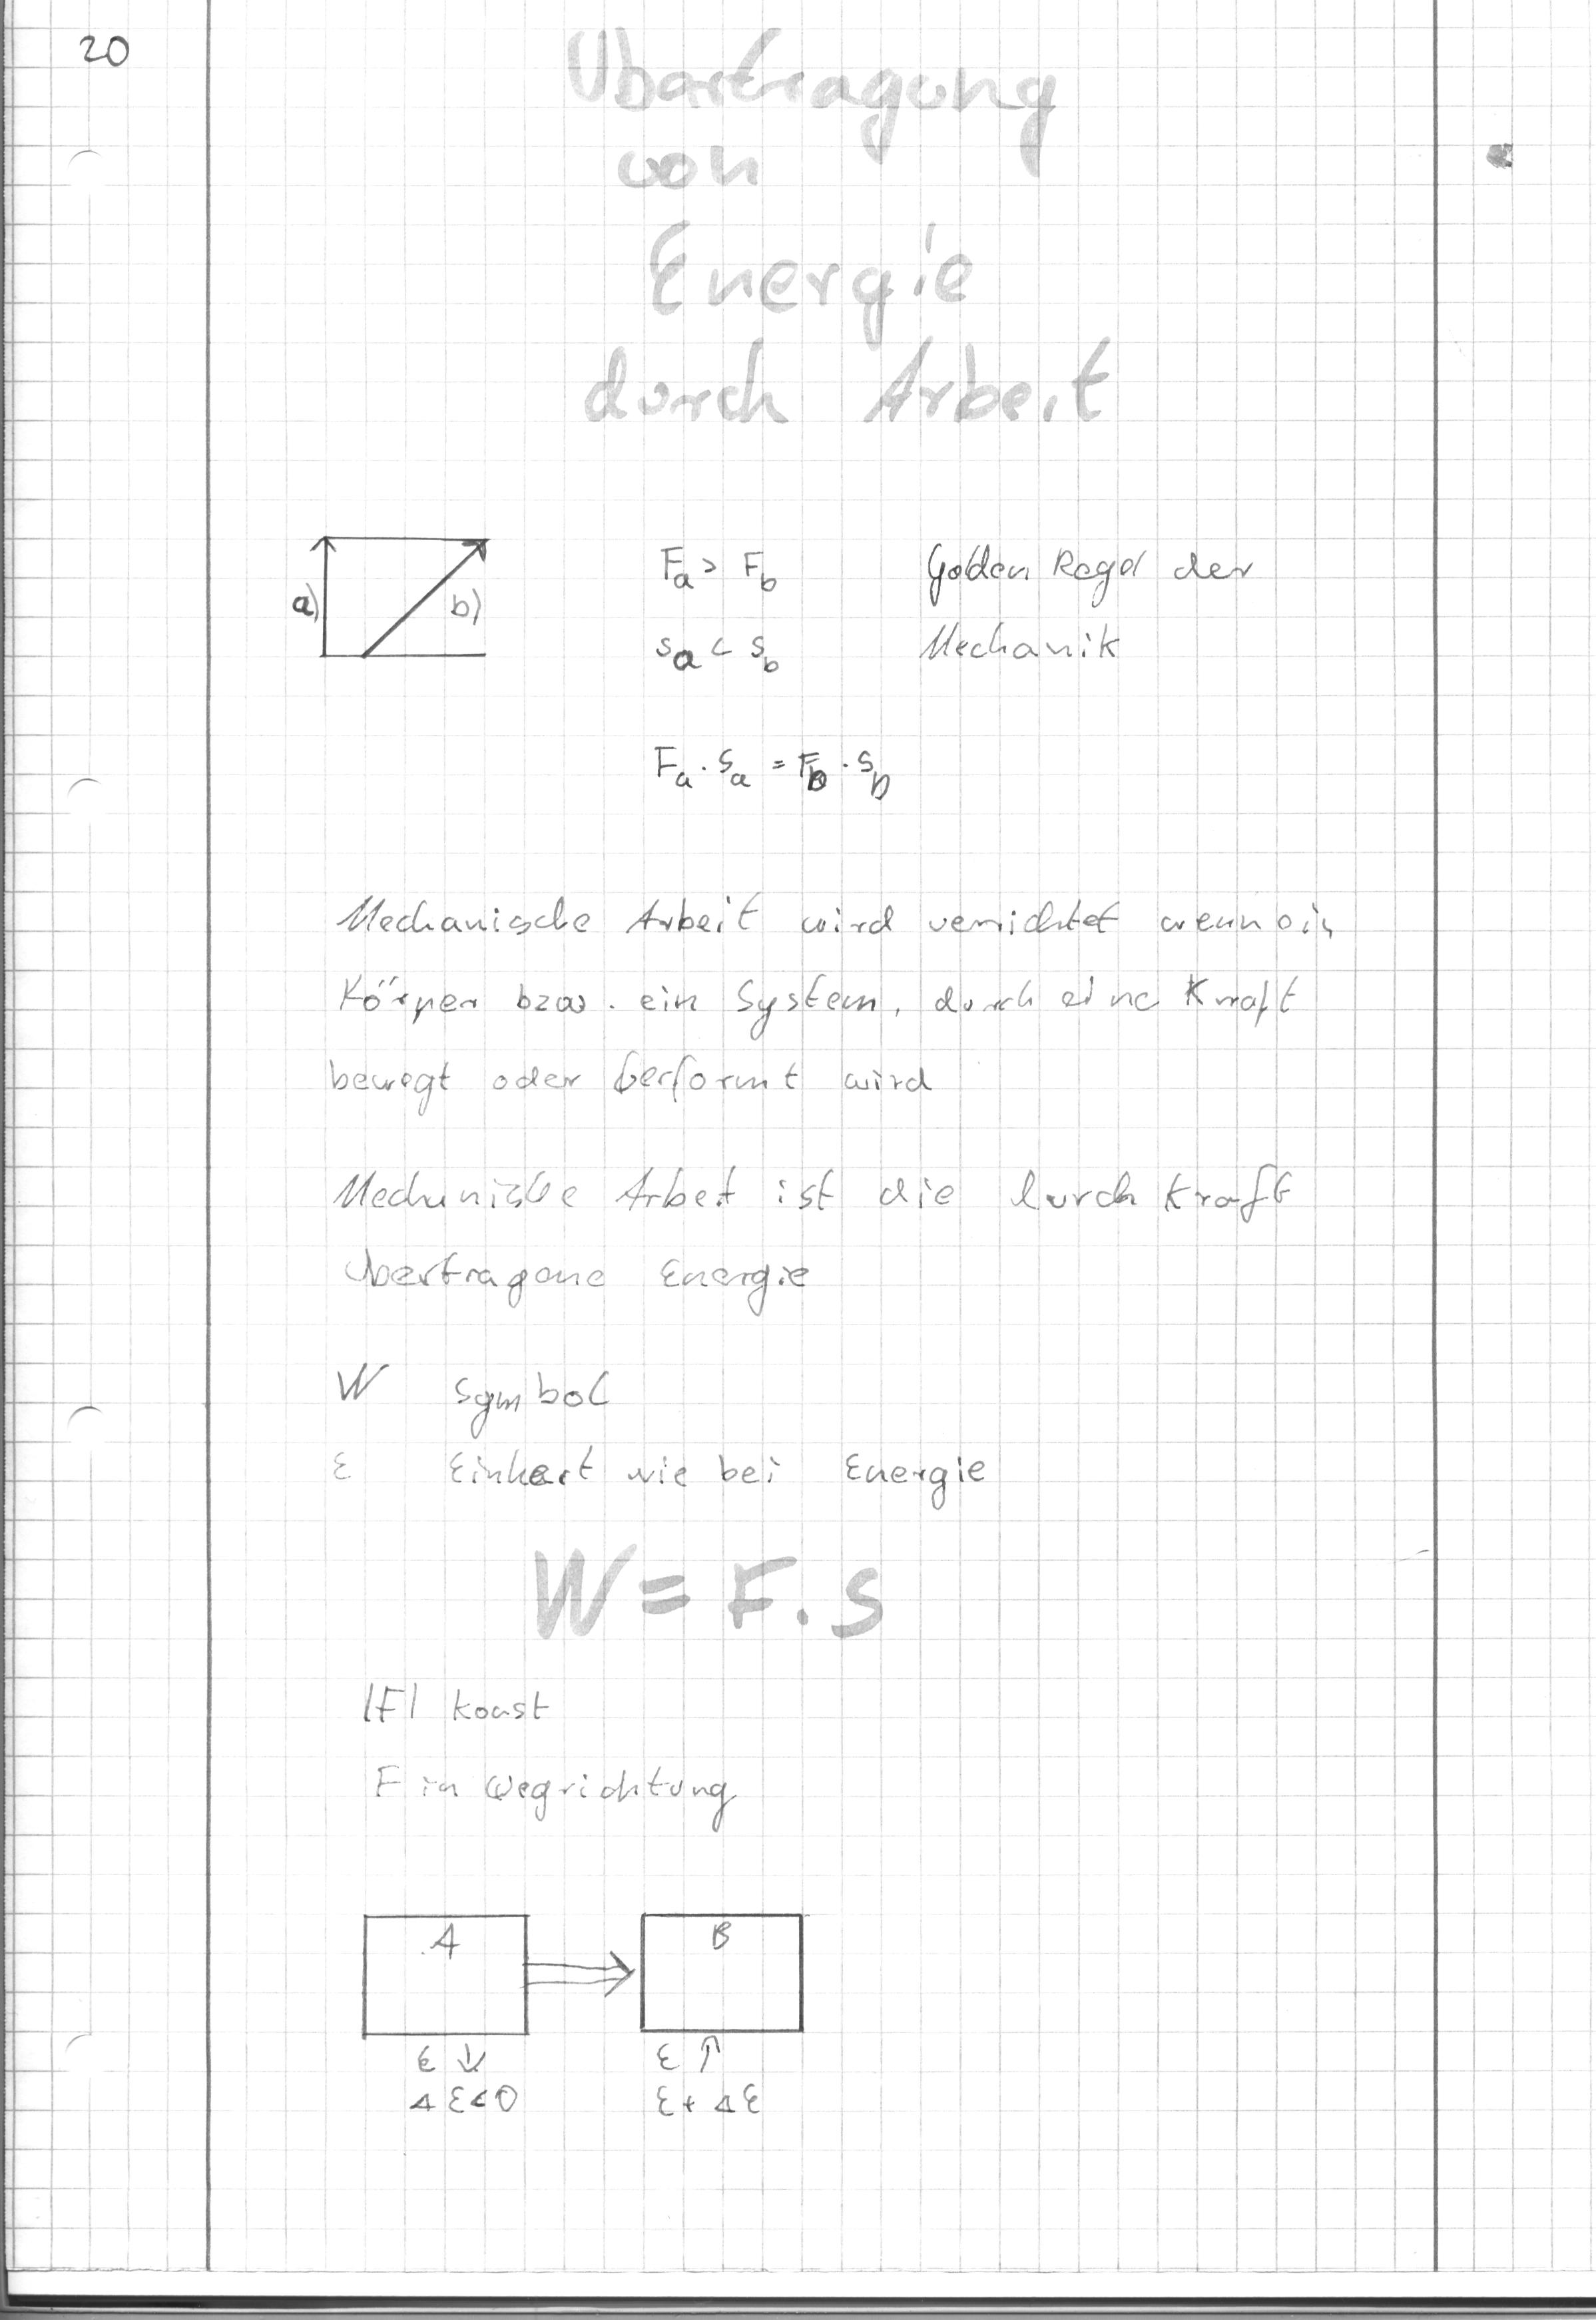 20
Übertragung
von
Energie
durch Arbeit
a)
b)
Fa > Fb
Golden Regel der
sa < sb
Mechanik
Fa · sa = Fb · sb
Mechanische Arbeit wird verrichtet wenn ein
Körper bzw. ein System, durch eine Kraft
bewegt oder verformt wird
Mechanische Arbeit ist die durch Kraft
übertragene Energie
W Symbol
E Einheit wie bei Energie
W = F · s
|F| konst
F in Wegrichtung
A
B
E ↓
E ↑
Δ E < 0
E + Δ E